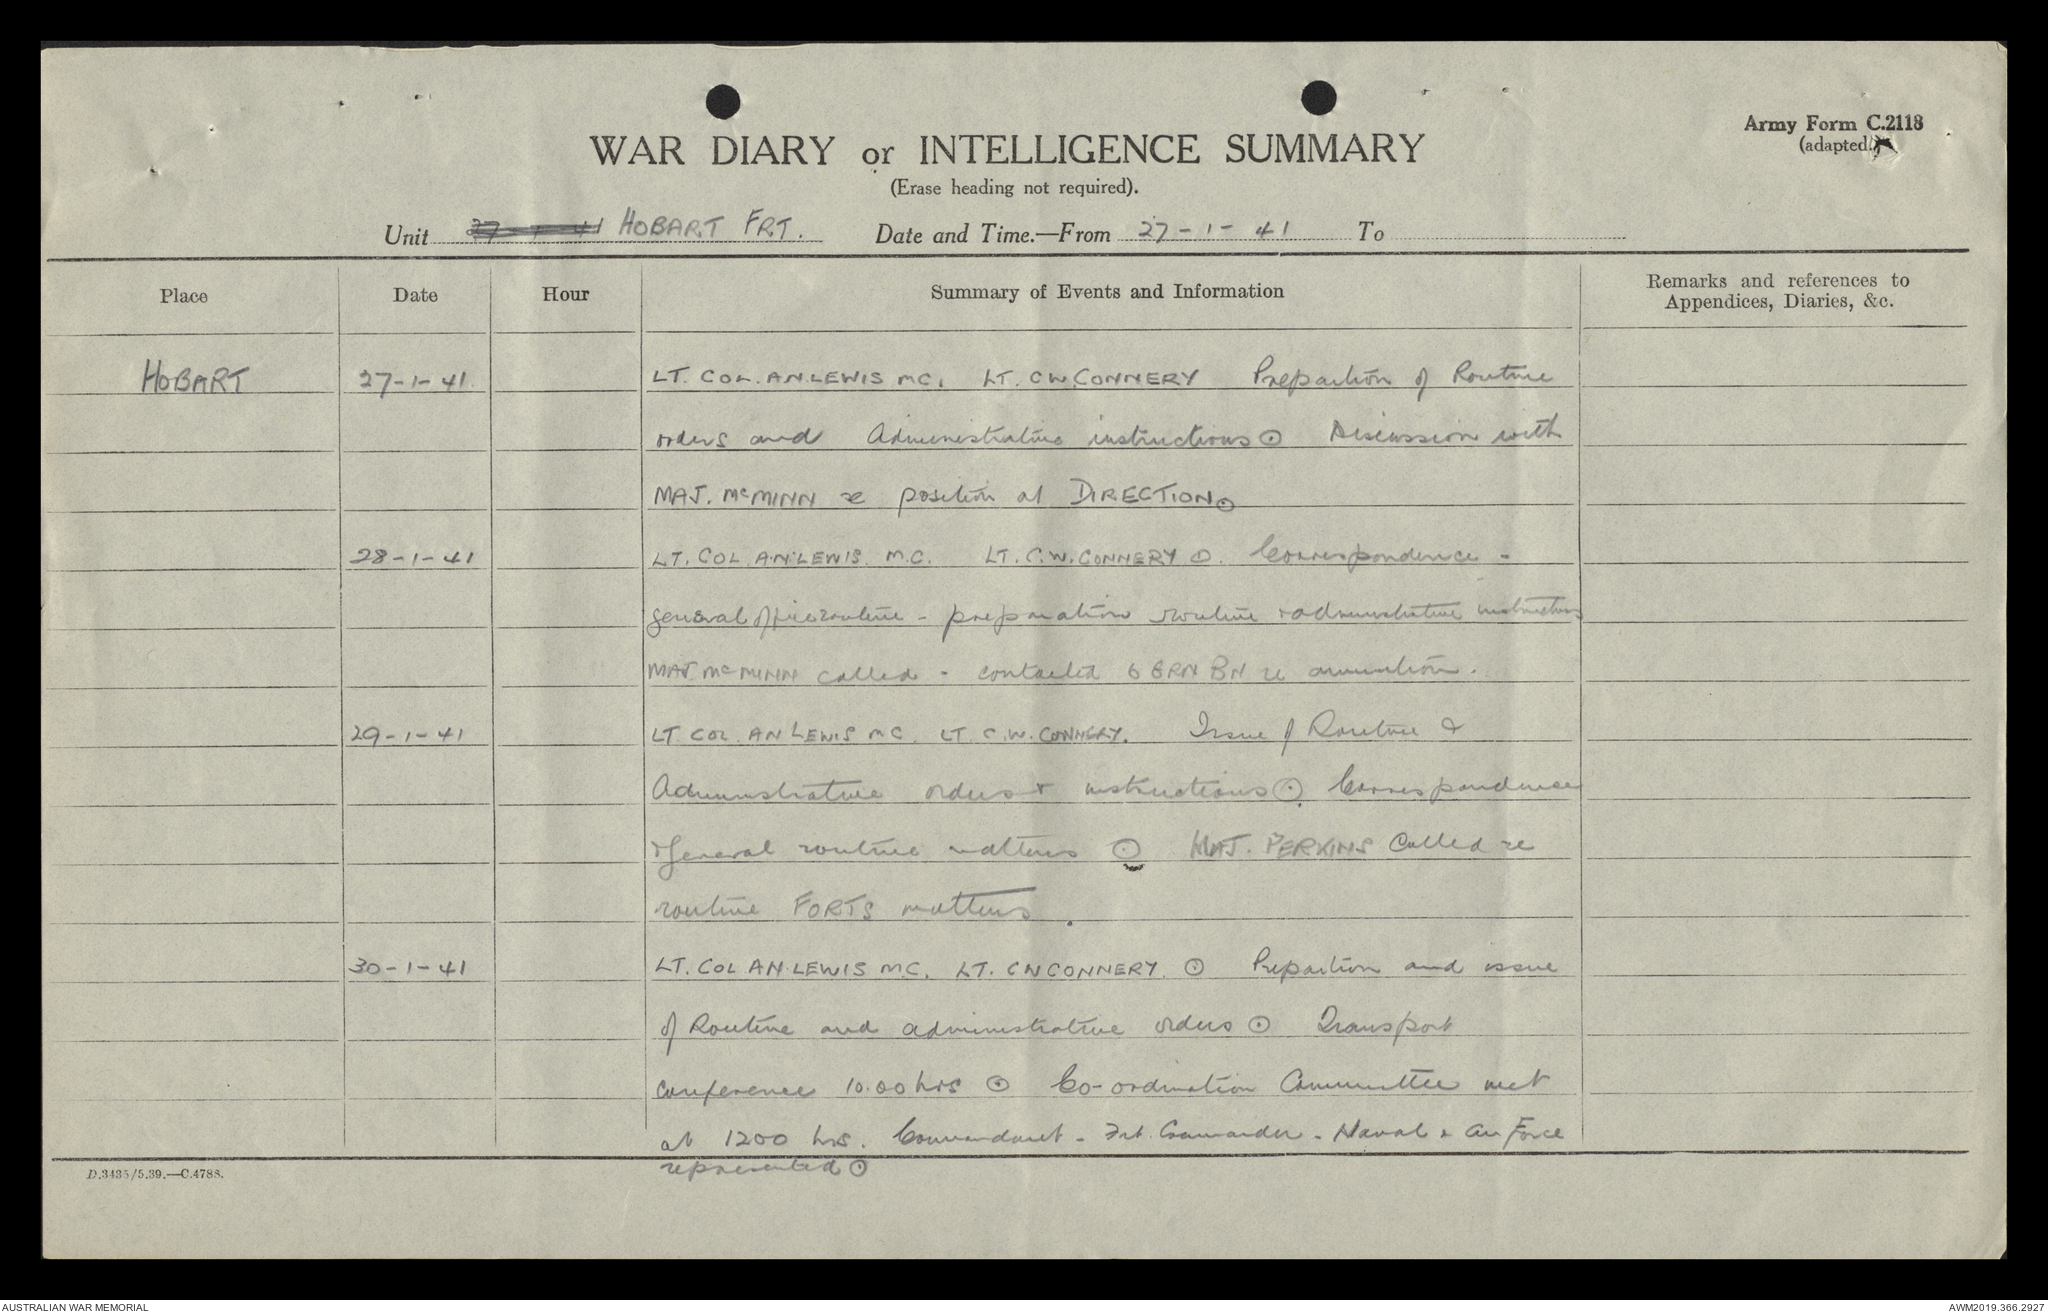 Army Form C.2118
(adapted.)
WAR DIARY or INTELLIGENCE SUMMARY
(Erase heading not required).
Unit 27-1-41 HOBART FRT. Date and Time.—From 27-1-41 To
Place Date Hour Summary of Events and Information Remarks and references to
Appendices, Diaries, &c.
HOBART 27-1-41. LT. COL. A.N. LEWIS MC. LT. C.W. CONNERY Prepartion of Routine
orders and Administrative instructions ⊙ Discussion with
MAJ. McMINN re position at DIRECTION ⊙
28-1-41 LT. COL A.N. LEWIS. M.C. LT. C.W. CONNERY ⊙. Correspondence -
general office routine - preparation routine & administrative instructions
MAJ. McMINN called - contacted 6 GRN BN re ammution.
29-1-41 LT COL. AN LEWIS MC. LT. C.W. CONNERY. Issue of Routine &
Administrative orders & instructions ⊙. Correspondence
& general routine matters ⊙ MAJ. PERKINS Called re
routine FORTS matters.
30-1-41 LT. COL A.N. LEWIS M.C. LT. CW CONNERY. ⊙ Prepartion and issue
of Routine and administrative orders ⊙ Transport
conference 10.00 hrs ⊙ Co-ordination Committee met
at 1200 hrs. Commandant - Frt. Commander - Naval & Air Force
represented ⊙
D.3435/5.39.—C.4788.
AUSTRALIAN WAR MEMORIAL AWM2019.366.2927